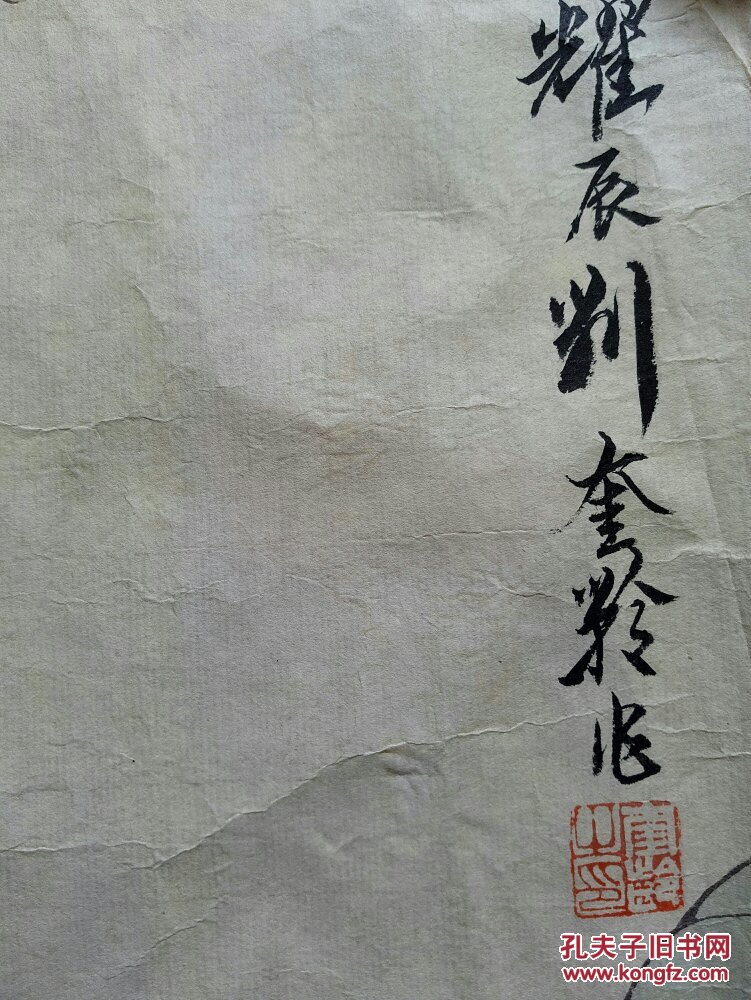 耀辰劉奎齡作
之印
孔夫子旧书网
www.kongfz.com